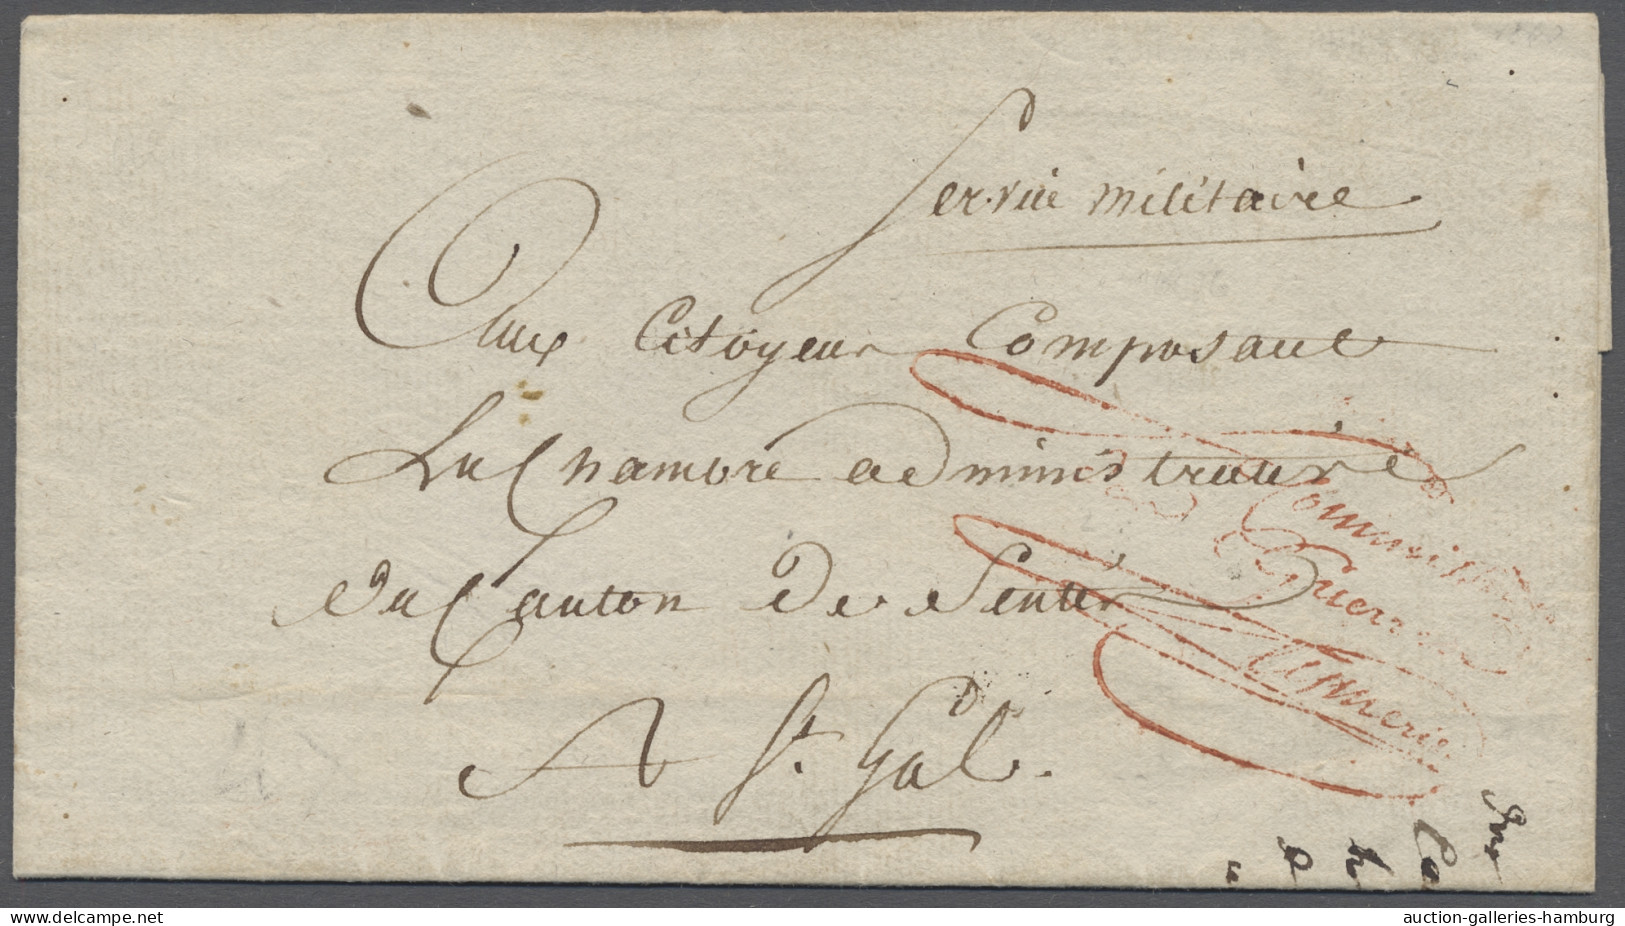 Service militaire
Aux Citoyens Composant
La Chambre administrative
Du Canton De Sentis
A St. Gal.
Commissaire
Guerre
auction-galleries-hamburg
www.delcampe.net